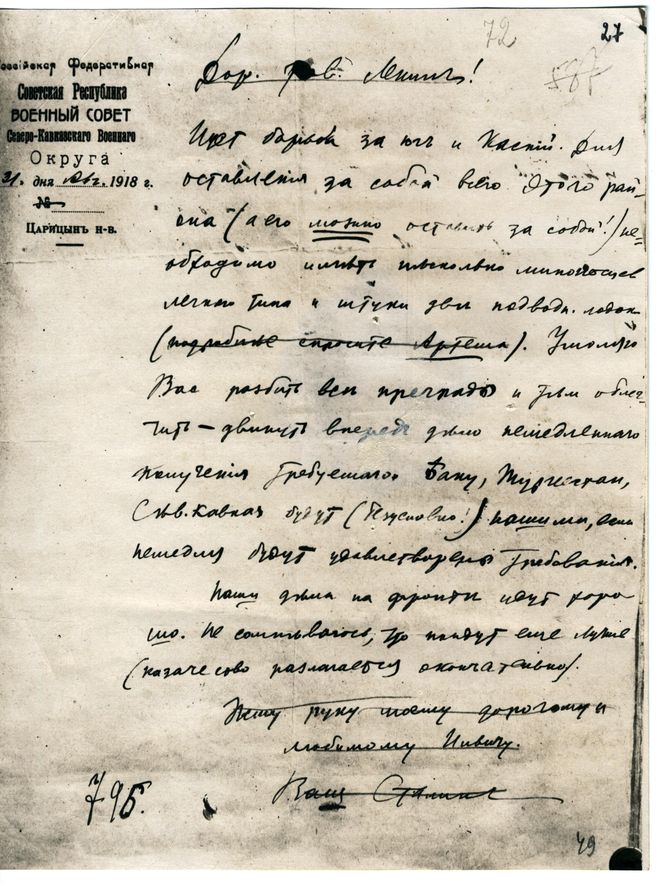 72
27
оссійская Федеративная
Советская Республика
ВОЕННЫЙ СОВЕТ
Северо-Кавказского Военнаго
Округа
31 дня Авг. 1918 г.
№
Царицынъ н-в.
Дор. тов. Ленинъ!
Идет борьба за юг и Каспий. Для
оставления за собой всего этого рай-
она (а его можно оставить за собой!) не-
обходимо иметь несколько миноносцев
легкого типа и штуки две подводн. лодок
(подробнее спросите Артема). Умоляю
Вас разбить все преграды и тем облег-
чить – двинуть вперед дело немедленного
получения требуемаго. Баку, Туркестан,
Сев. Кавказ будут (безусловно!) нашими, если
немедля будут удовлетворены требования.
Наши дела на фронте идут хоро-
шо. Не сомневаюсь, что пойдут еще лучше
(казачество разлагается окончательно).
Жму руку моему дорогому и
любимому Ильичу.
Ваш Сталин
795.
49